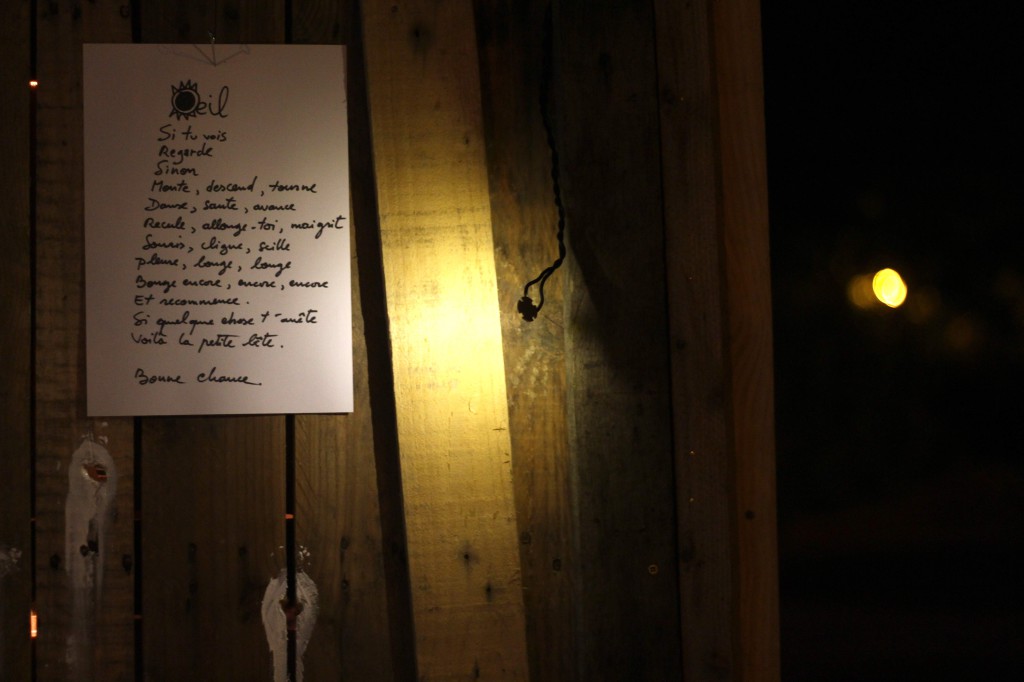 Oeil
Si tu vois
Regarde
Sinon
Monte, descend, tourne
Danse, saute, avance
Recule, allonge-toi, maigrit
Souris, cligne,
pleure, bouge, bouge
Bouge encore, encore, encore
Et recommence.
Si quelque chose t'arrête
Voilà la petite bête.
Bonne chance.